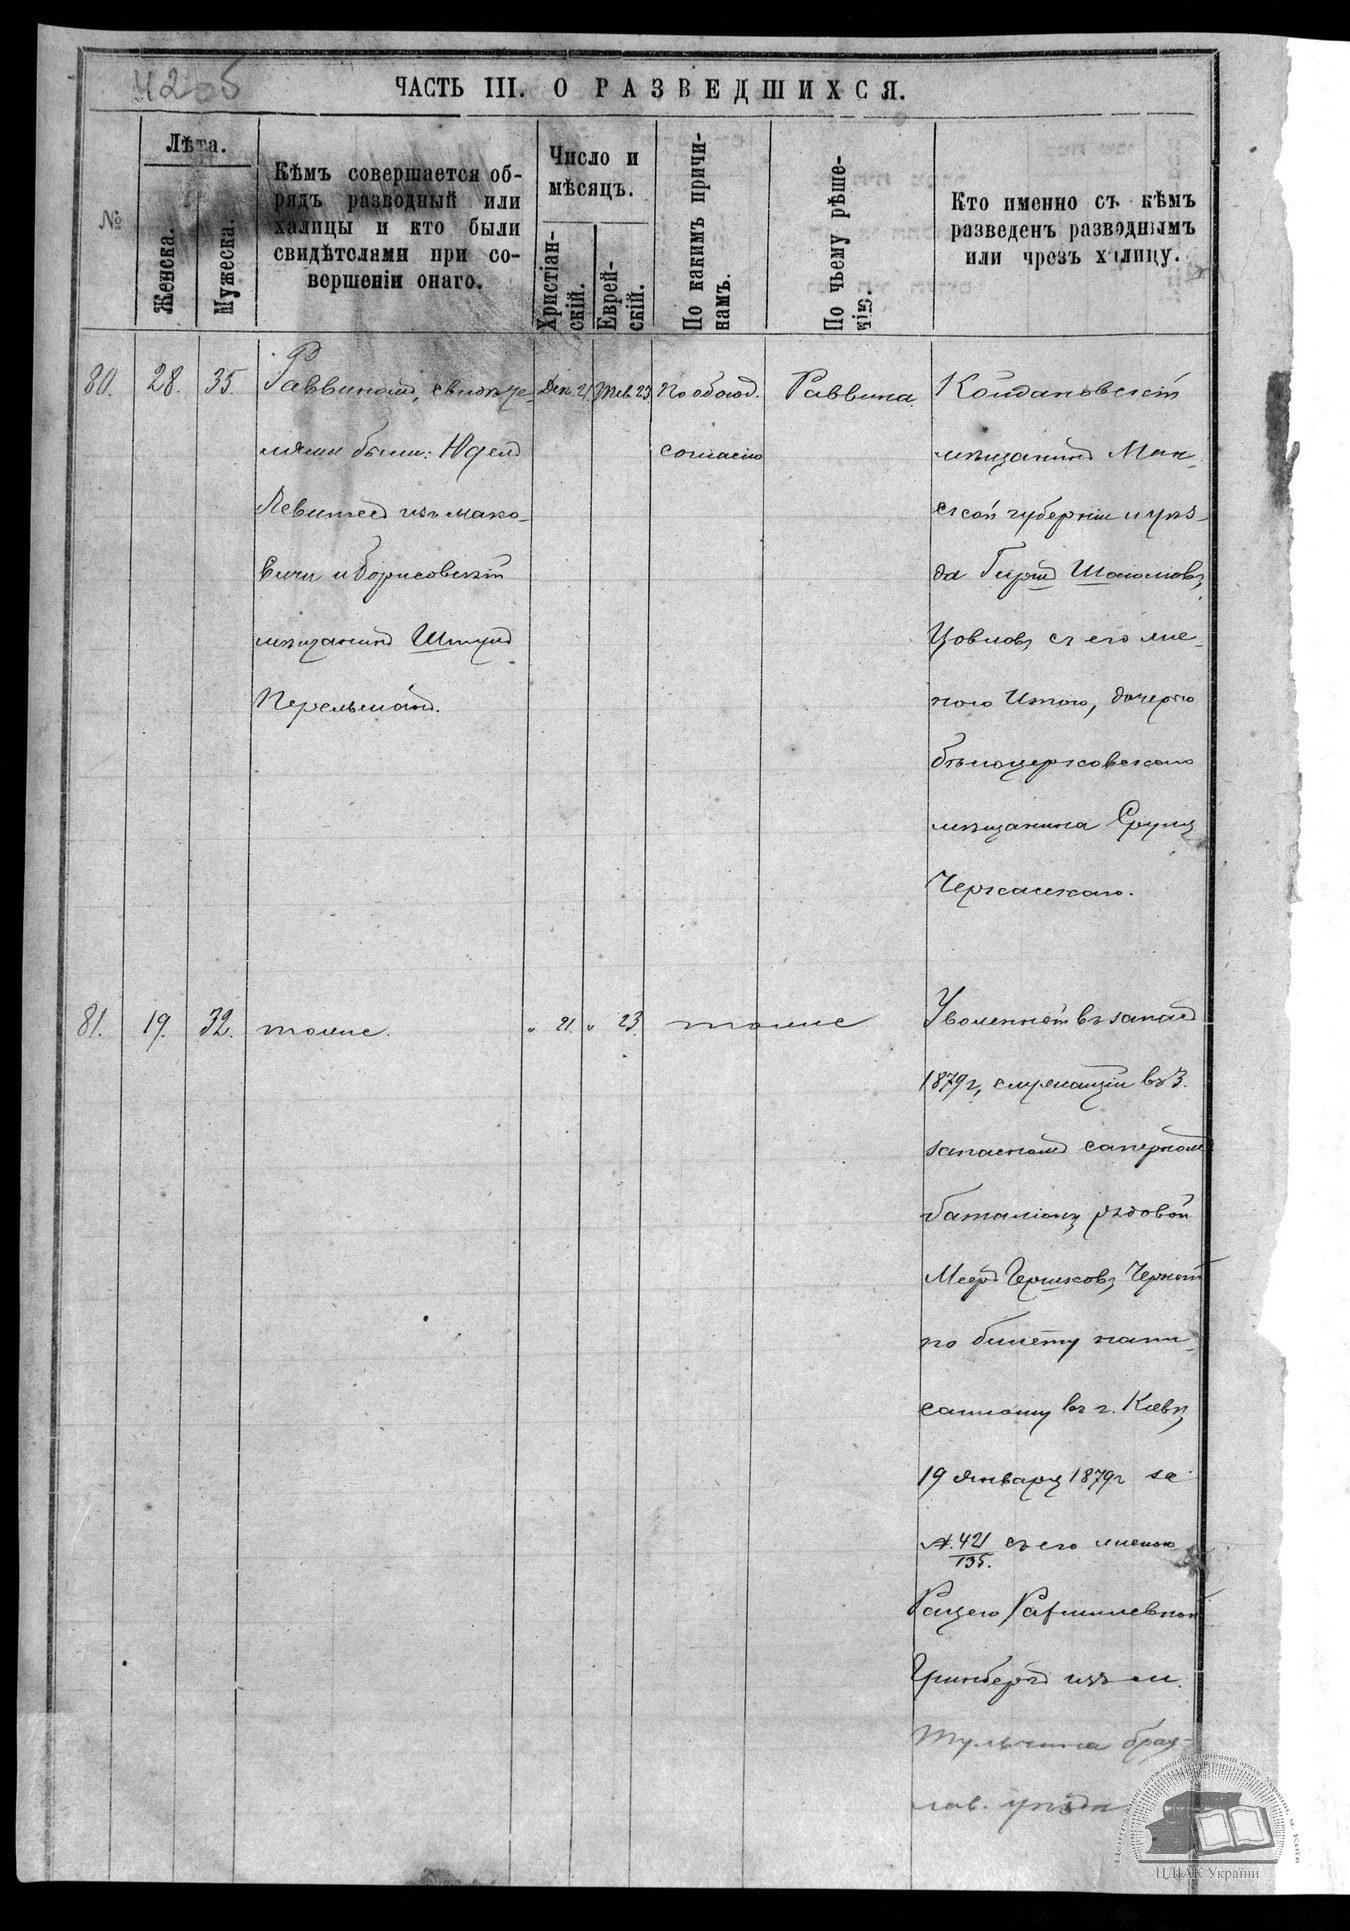 42об
ЧАСТЬ III. О РАЗВЕДШИХСЯ.
№
Лѣта.
Женска.
Мужеска.
Кѣмъ совершается об-
рядъ разводный или
халицы и кто были
свидѣтелями при со-
вершеніи онаго.
Число и
мѣсяцъ.
Христіан-
скій.
Еврей-
скій.
По какимъ причи-
намъ.
По чьему рѣше-
нію.
Кто именно съ кѣмъ
разведенъ разводнымъ
или чрезъ халицу.
80.
28.
35.
Раввиномъ, свидѣте-
лями были: Юдель
Левитес изъ
и Борисовскій
мѣщанинъ Шмуль
Перельманъ.
Дек. 21.
Тев. 23.
По обоюд.
согласію
Раввина.
Койдановскій
мѣщанинъ Мин-
ской губерніи и уѣз-
да Гиршъ Шоломовъ
съ его же-
ною Итою, дочерью
бѣлоцерковскаго
мѣщанина Сруля
Черкасскаго.
81.
19.
32.
тоже.
" 21.
" 23.
тоже
Уволенный въ запасъ
1879 г, служащій въ 3.
запасномъ саперномъ
баталіону рядовой
Мееръ Гершковъ Черный
по билету напи-
санному въ г. Кіевѣ,
19 Января 1879 г за
№. 421/135. съ его женою
Рафаиловной
Гринбергъ изъ м.
Тульчина брац-
лав. уѣзда
Центральний державний історичний архів України, м. Київ
ЦДІАК України